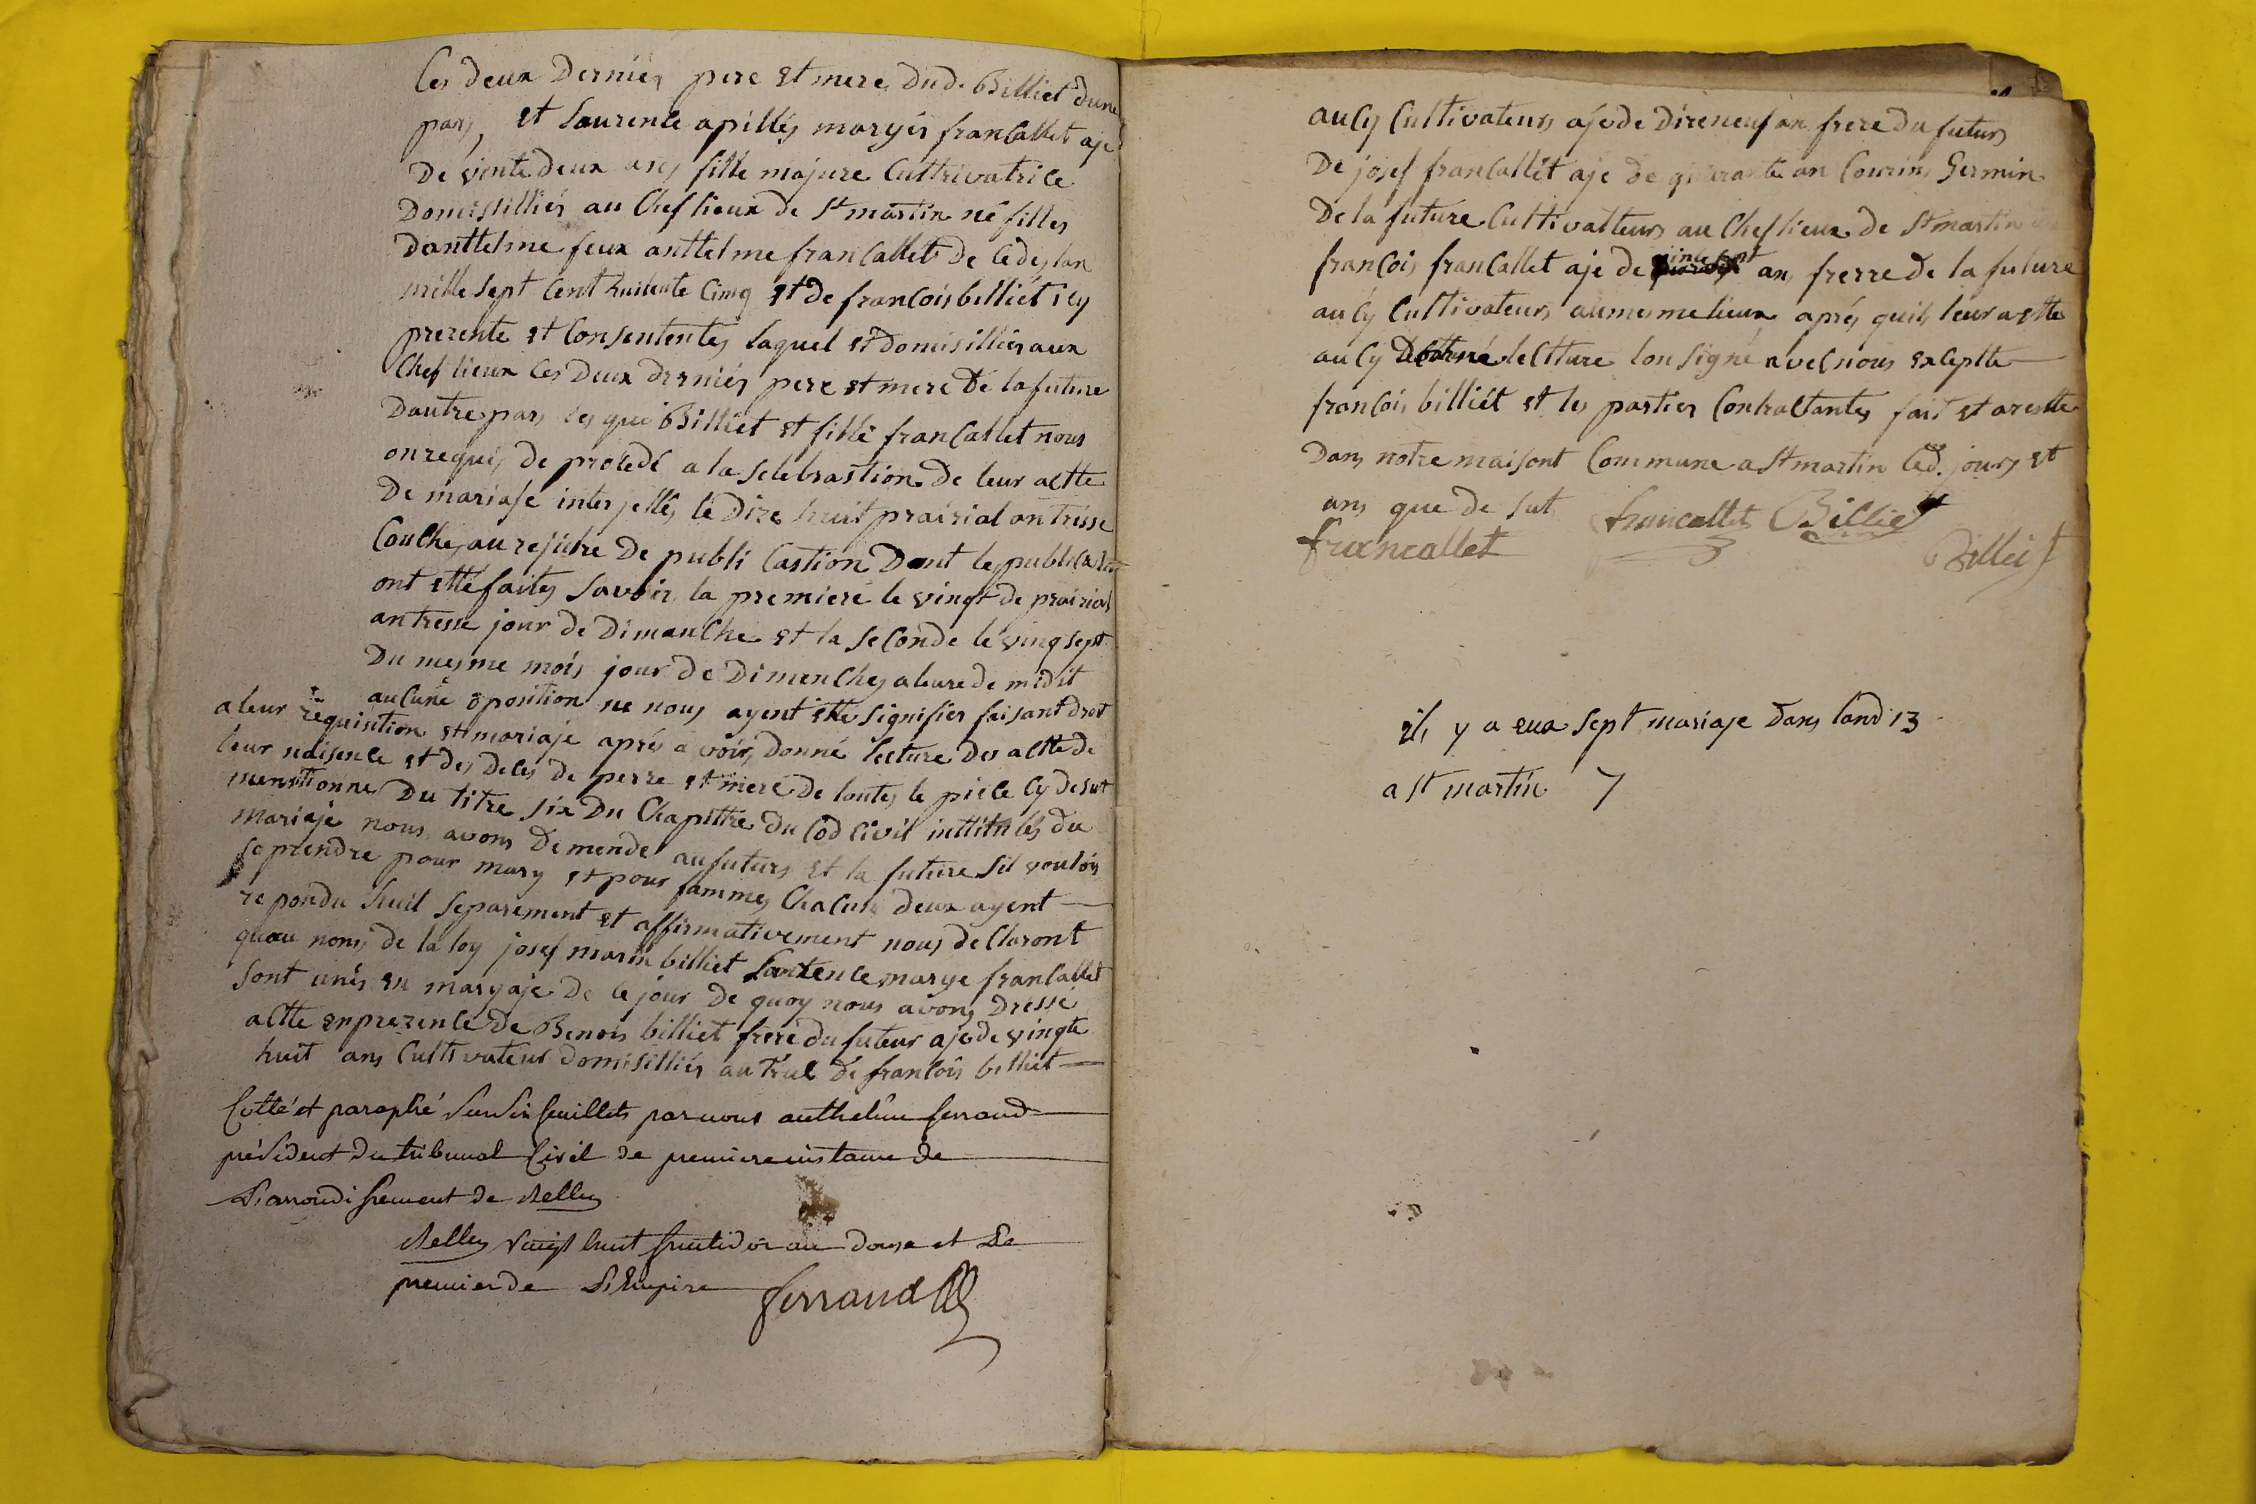 Ces deux Derniés pere et mere dud. Billiet dune
pars, et Laurence apilliés maryés francallet aje
De vinte deux ans fille majure Cultrivatrice
Domistilliés au Chef lieux de St martin né filles
Danttelme feux anttelme francallet De cedes lan
mille sept Cent huittente Cinq et de francois billiét icy
prezente et Consententes laquel et domisilliés aux
Chef lieux Ces Deux derniés pere et mere De la future
Dautre pars les que Billiet et fille francallet nous
on requis de procedé a la selebrastion De leur actte
De mariaje interjettés le Dize huit prairial an trisse
Couche, au rejidre De publi Castion Dont le publica
ont etté faites Savoir la premiere le vingt de prairial
an tresse jour de Dimanche et la seconde le vingsept
Du mesme mois jour de Dimenches a leure de midit
aucune oposition ne nous ayent etté signifiés faisant drot
a leur requisition et mariaje aprés avoir donné lecture des actte de
leur naisence et des deces de perre et mere De toutes le piece Cy desut
menstionne Du titre six Du Chapittre du Cod Civil inttitulés du
Mariaje nous avons Demende au futurs et la future sil voulois
se prendre pour mary et pour fammes Chacun deux ayent
repondu huil separément et affirmativement nous declaront
quau noms de la loy josef marin billiet Laurence marye francallet
sont unis en maryaje De ce jour de quoy nous avons Dressé
actte enprezence de Benois billiet frere du futeur aje de vingte
huit ans Cultivateur domisilliés au trul de francois billiet
Cotté et paraphé sur six feuillets par nous anthelme ferrand
président du tribunal Civil de premiere instance de
L'arrondissement de Belley
Belley vingt huit fructidor an douze et Le
premier de L'Empire ferrand
aucy Cultivateurs aje de Dizeneuf an frere du futurs
De josef francallet aje de quarante an Courin Germin
De la future Cultivatteurs au Chef lieux de St martin
francois francallet aje de vince sept ans frerre De la future
aucy Cultivateurs aumesme lieux aprés quils leur a ette
aucy donné lectture lon signé avec nous exceptte
francois billiét et les parties Contractantes fait et arestte
Dans notre maisont Commune a St martin Ced. jours et
ans que de sut francallet Billiet
francallet Billiet
ils y a eux sept mariaje dans land 13
a st martin 7